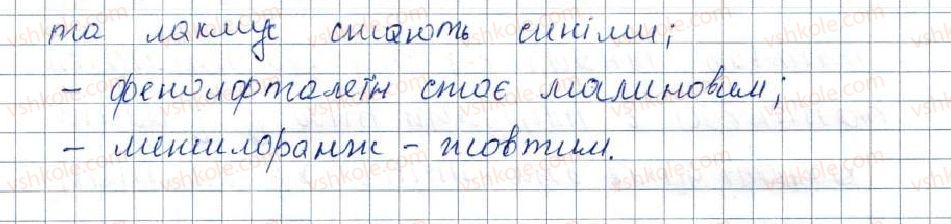 та лакмус стають синіми;
- фенолфталеїн стає малиновим;
- метилоранж - жовтим.